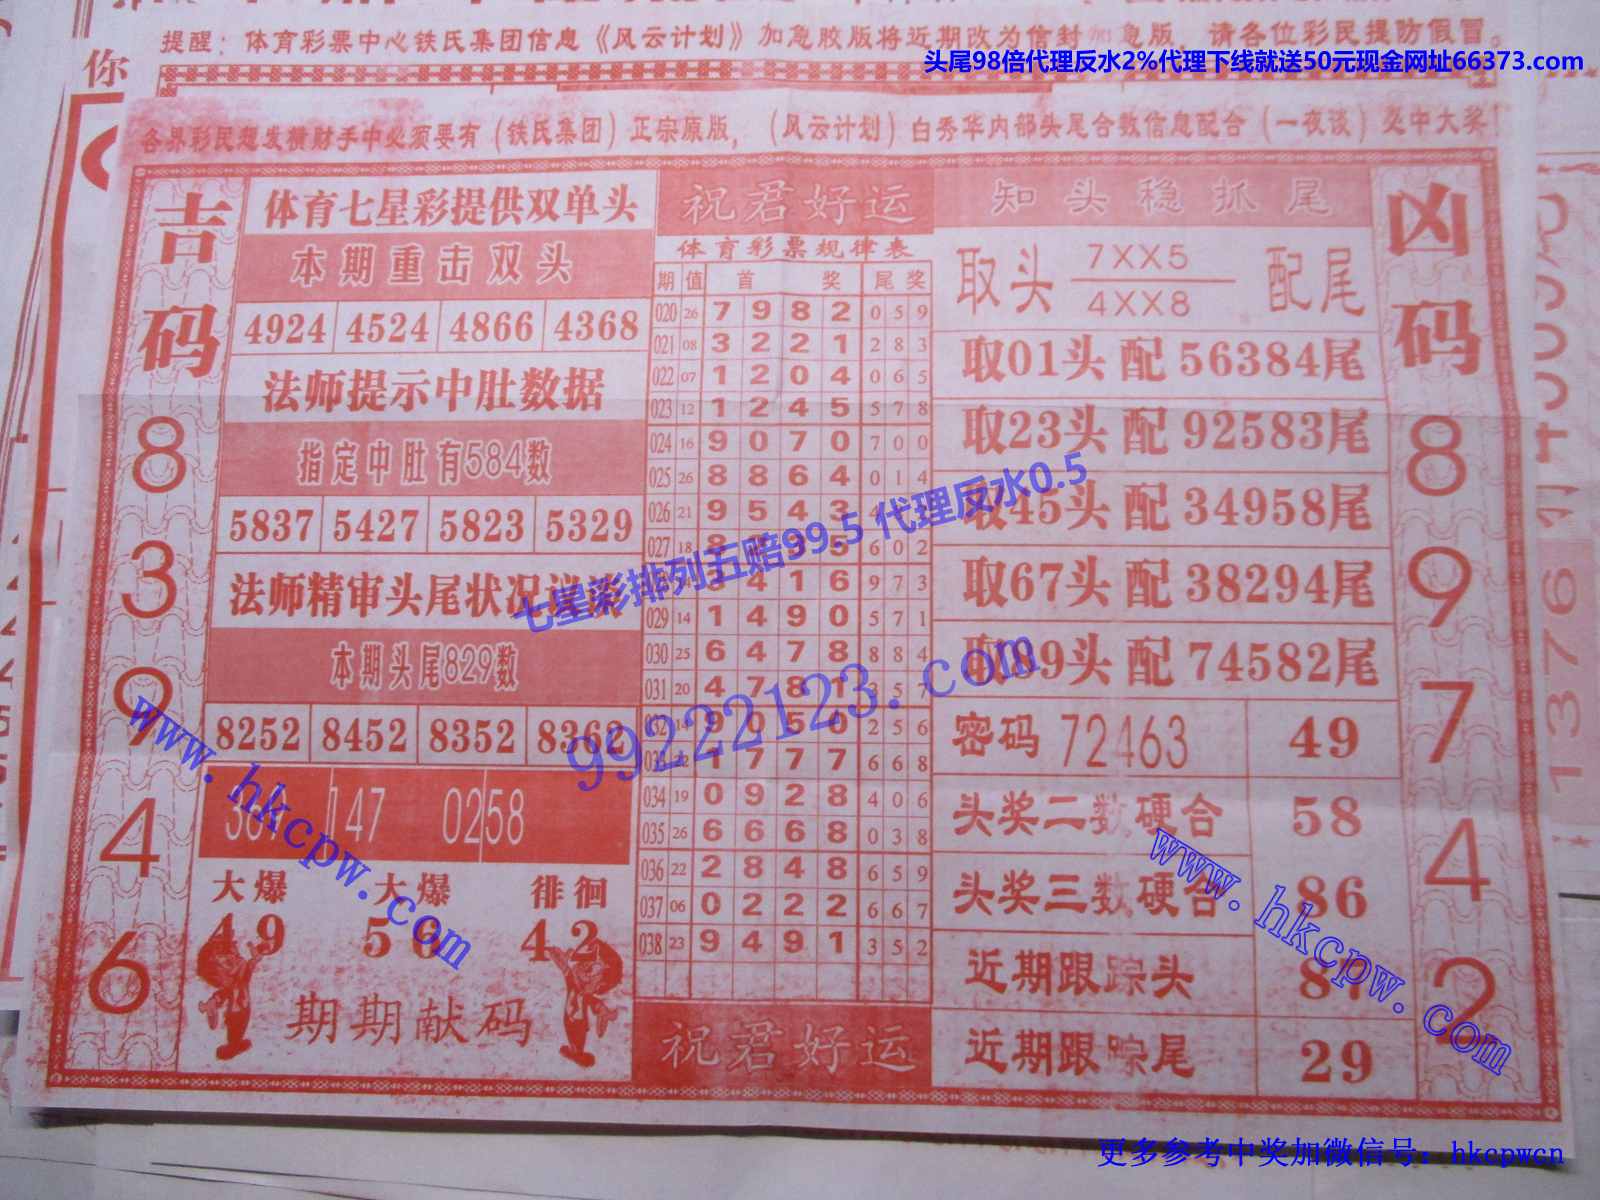 提醒：体育彩票中心铁氏集团信息《风云计划》加急胶版将近期改为信封加急版，请各位彩民提防假冒。
头尾98倍代理反水2%代理下线就送50元现金网址66373.com
你
各界彩民想发横财手中必须要有（铁氏集团）正宗原版，（风云计划）白秀华内部头尾合数信息配合（一夜谈）必中大奖！
吉码
8
3
9
4
6
体育七星彩提供双单头
本期重击双头
4924 4524 4866 4368
法师提示中肚数据
指定中肚有584数
5837 5427 5823 5329
法师精审头尾状况
本期头尾829数
8252 8452 8352 8362
147 0258
大爆 大爆 徘徊
49 56 42
期期献码
祝君好运
体育彩票规律表
期 值 首 奖 尾 奖
020 26 7 9 8 2 0 5 9
021 08 3 2 2 1 2 8 3
022 07 1 2 0 4 0 6 5
023 12 1 2 4 5 5 7 8
024 16 9 0 7 0 7 0 0
025 26 8 8 6 4 0 1 4
026 21 9 5 4 3
027 18 5 6 0 2
4 1 6 9 7 3
029 14 1 4 9 0 5 7 1
030 25 6 4 7 8 8 8 4
031 20 4 7 8 1 3 5 7
032 14 9 0 5 0 2 5 6
033 22 1 7 7 7 6 6 8
034 19 0 9 2 8 4 0 6
035 26 6 6 6 8 0 3 8
036 22 2 8 4 8 6 5 9
037 06 0 2 2 2 6 6 7
038 23 9 4 9 1 3 5 2
祝君好运
知头稳抓尾
取头 7XX5 配尾
4XX8
取01头 配 56384尾
取23头 配 92583尾
取45头 配 34958尾
取67头 配 38294尾
取89头 配 74582尾
密码 72463 49
头奖二数硬合 58
头奖三数硬合 86
近期跟踪头 87
近期跟踪尾 29
凶码
8
9
7
4
2
1376
七星彩排列五赔99.5 代理反水0.5
99222123.com
www.hkcpw.com
www.hkcpw.com
更多参考中奖加微信号：hkcpwcn